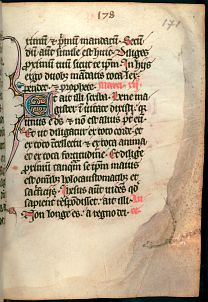 178
171
ximum & primum mandatum. Secun
dum aut simile est huic. Diliges
proximum tuum sicut te ipsm. In hys
ergo duobz mandatis tota lex
pendet & prophete.
Et ait illi scriba. Bene ma
in veritate dixisti. qr
unus e ds & no est alius pr eu.
Et ut diligatur ex toto corde et
ex toto intellectu & ex tota anima
et ex tota fortitudine. Et dilige
proximum tanqm se ipsm maius
est omibz holocaustomatibz et
sacrificiis. Jesus aut videns qd
sapienter respondisset. ait illi.
Non longe es a regno dei.